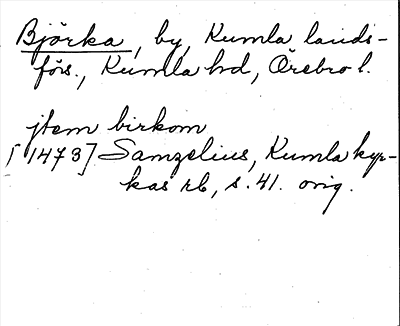 Björka, by, Kumla lands-
förs., Kumla hd, Örebro l.
jtem birkom
[1473] Samzelius, Kumla kyr-
kas rb, s. 41. orig.